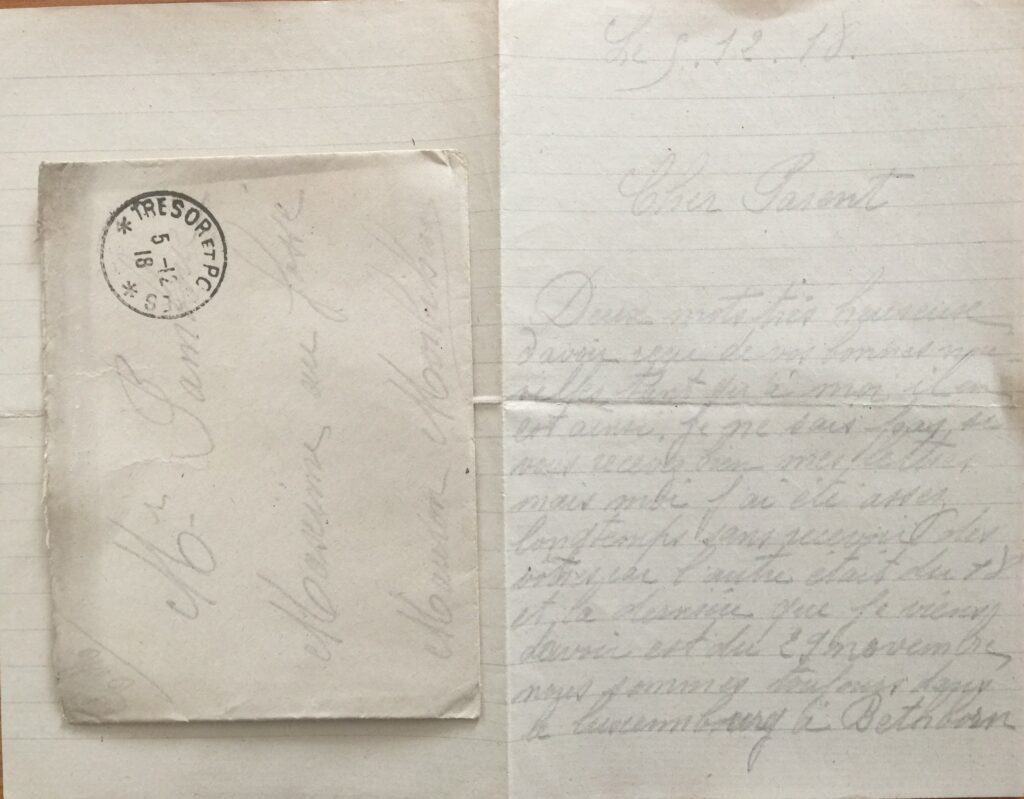 TRESOR ET POSTES
5 -12
18
Mr
Maxime au
Maurin
Le 5.12.18.
Cher Parent
Deux mots très heureuse
d'avoir reçu de vos bonnes nou
velles tant qu'à moi il en
est ainsi. Je ne sais pas si
vous recevez bien mes lettres,
mais moi j'ai été assez
longtemps sans recevoir des
votres car l'autre était du 18
et la dernière que je viens
davoir est du 29 novembre,
nous sommes toujours dans
le luxembourg à Bettborn